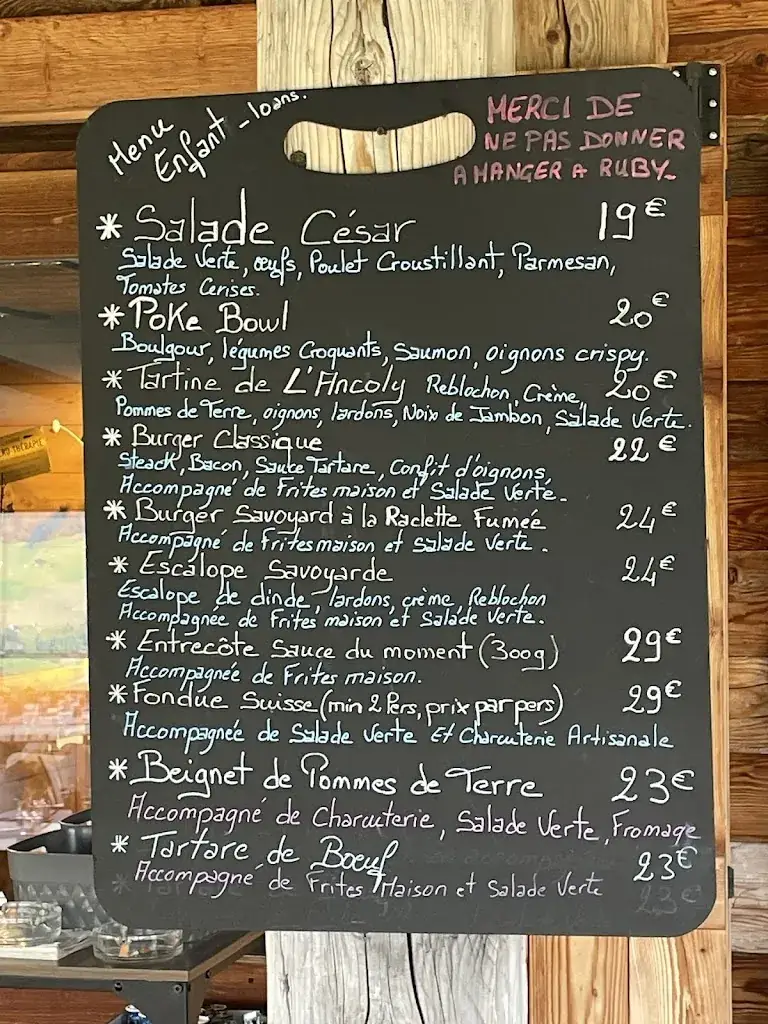 Menu
Enfant - 10ans.
MERCI DE
NE PAS DONNER
A MANGER A RUBY
* Salade César 19€
Salade Verte, œufs, Poulet Croustillant, Parmesan,
Tomates Cerises.
* Poke Bowl 20€
Boulgour, légumes Croquants, Saumon, oignons crispy.
* Tartine de L'Ancoly Reblochon, Crème, 20€
Pommes de Terre, oignons, lardons, Noix de Jambon, Salade Verte.
* Burger Classique 22€
Steack, Bacon, Sauce Tartare, Confit d'oignons,
Accompagné de Frites maison et Salade Verte.
* Burger Savoyard à la Raclette Fumée 24€
Accompagné de Frites maison et Salade Verte.
* Escalope Savoyarde 24€
Escalope de dinde, lardons, crème, Reblochon
Accompagnée de Frites maison et Salade Verte.
* Entrecôte Sauce du moment (300g) 29€
Accompagnée de Frites maison.
* Fondue Suisse (min 2 Pers, prix par pers) 29€
Accompagnée de Salade Verte Et Charcuterie Artisanale
* Beignet de Pommes de Terre 23€
Accompagné de Charcuterie, Salade Verte, Fromage
* Tartare de Bœuf 23€
Accompagné de Frites Maison et Salade Verte